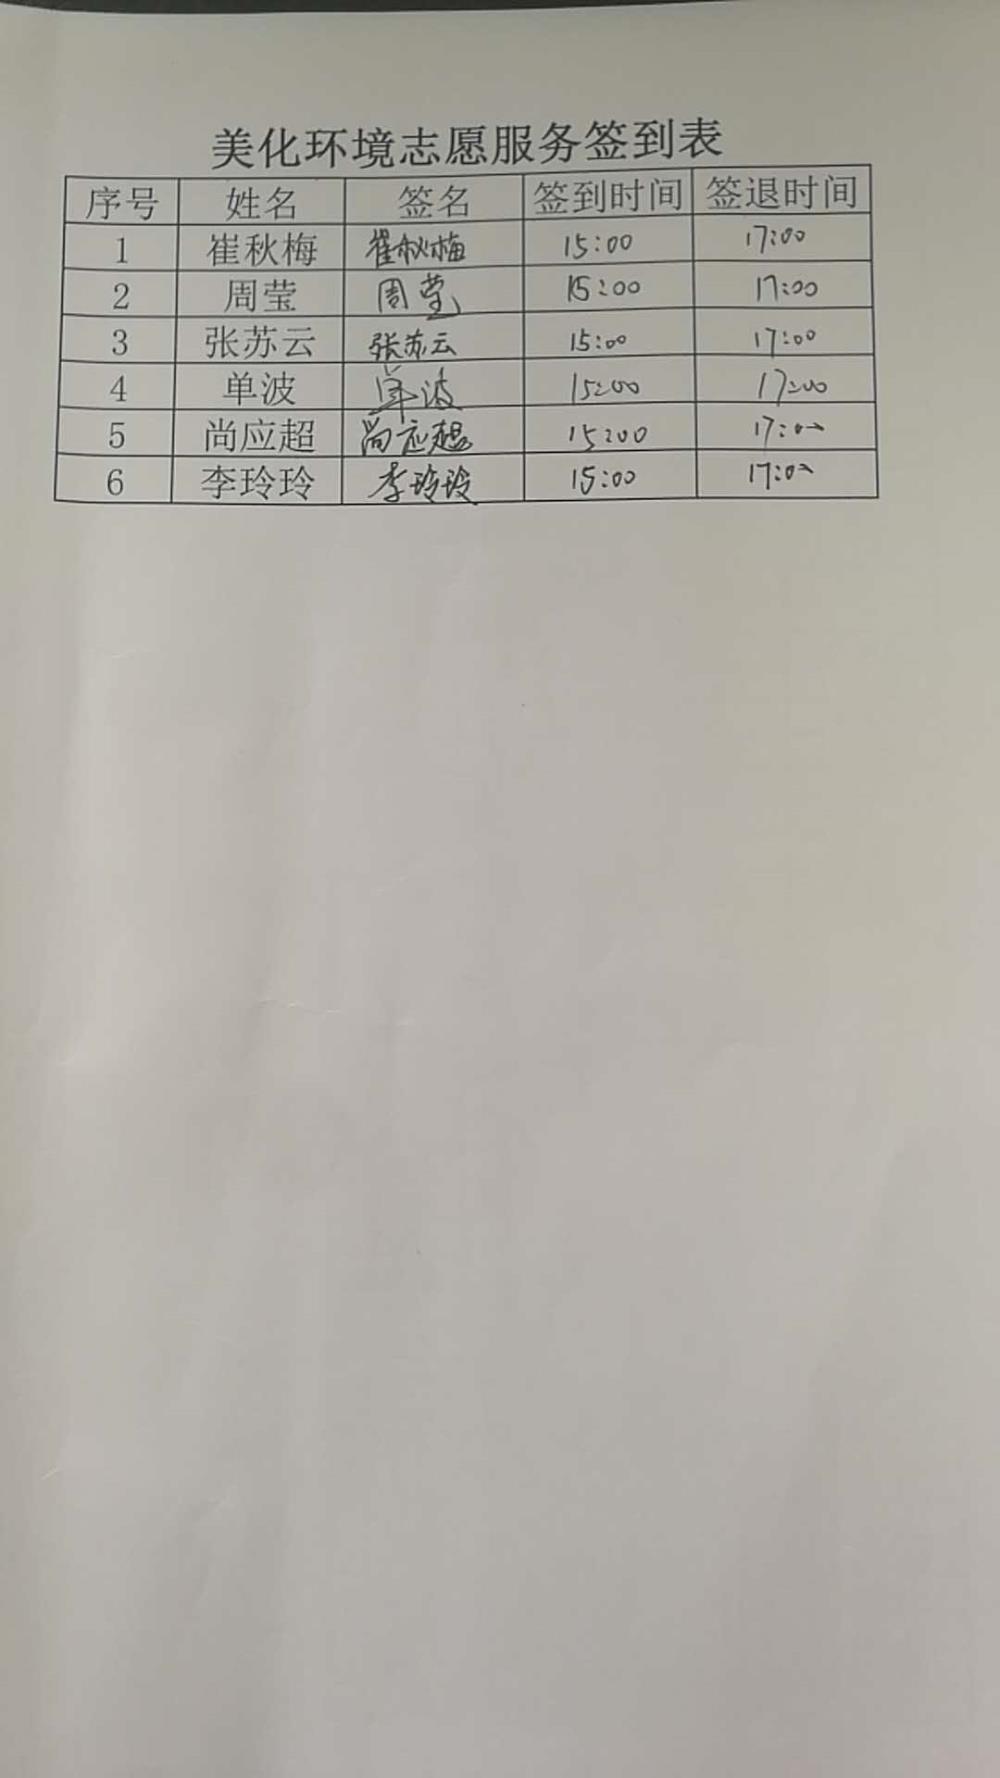 美化环境志愿服务签到表
序号 姓名 签名 签到时间 签退时间
1 崔秋梅 崔秋梅 15:00 17:00
2 周莹 周莹 15:00 17:00
3 张苏云 张苏云 15:00 17:00
4 单波 单波 15:00 17:00
5 尚应超 尚应超 15:00 17:00
6 李玲玲 李玲玲 15:00 17:00